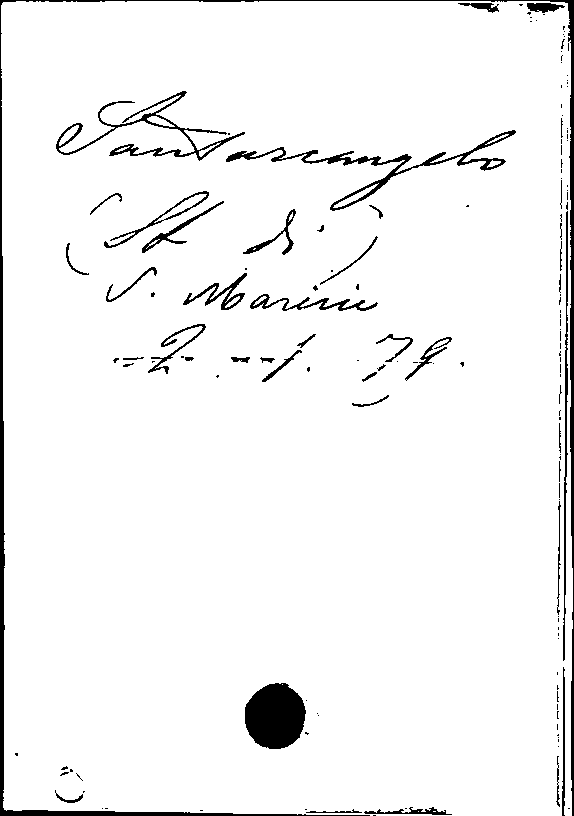 Santarcangelo
(St di)
S. Marini
2 1. 79.